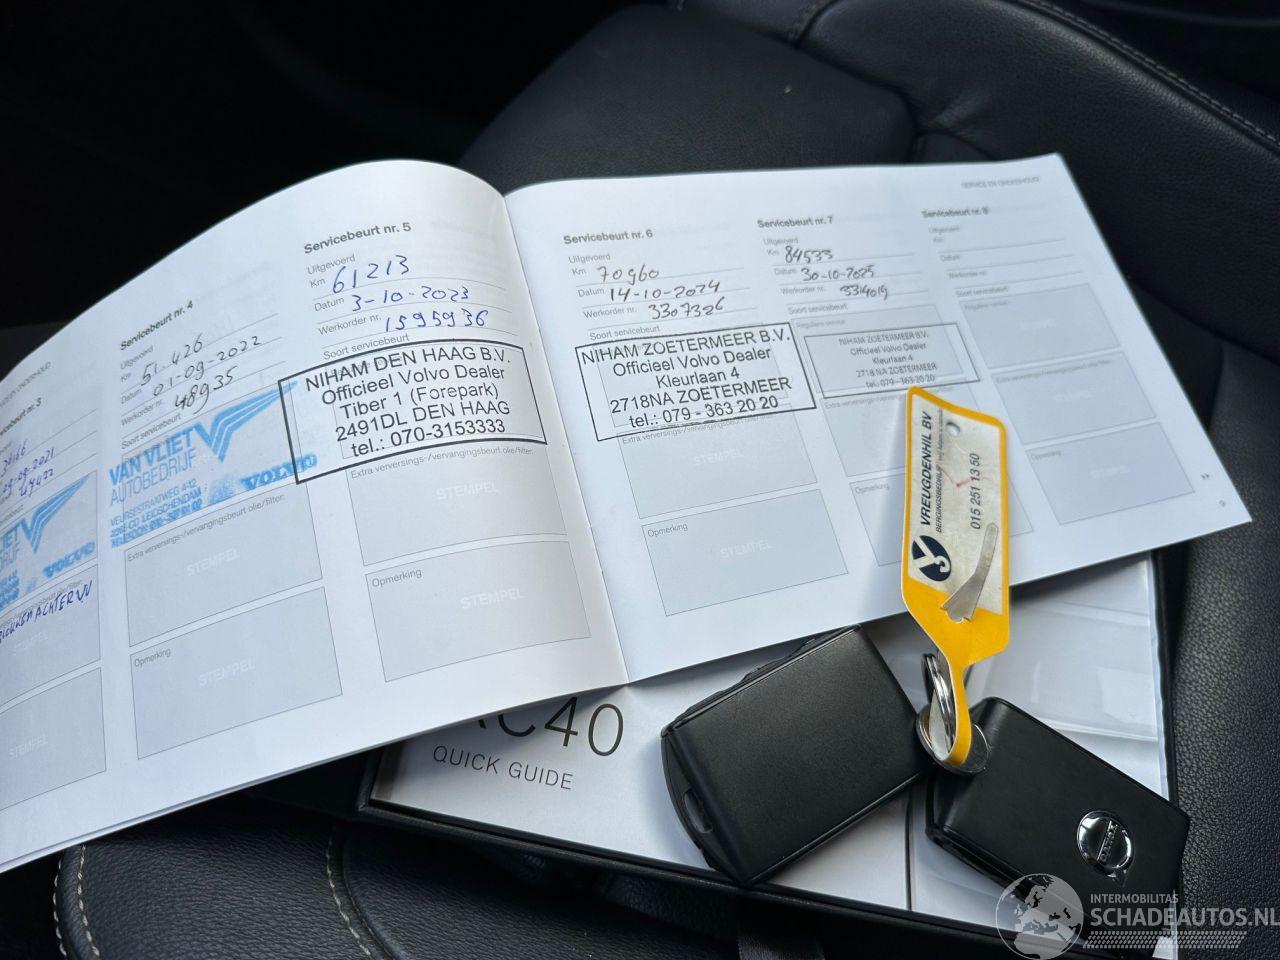 SERVICE EN ONDERHOUD
Servicebeurt nr. 4
Uitgevoerd
Km 51.426
Datum 01-09-2022
Werkorder nr. 48935
Soort servicebeurt
VAN VLIET
AUTOBEDRIJF
VOLVO
VEURSESTRAATWEG 4-12
LEIDSCHENDAM
Extra verversings-/vervangingsbeurt olie/filter:
STEMPEL
Opmerking
STEMPEL
VOLVO
ACHTER
STEMPEL
Servicebeurt nr. 5
Uitgevoerd
Km 61213
Datum 3-10-2023
Werkorder nr. 1595936
Soort servicebeurt
NIHAM DEN HAAG B.V.
Officieel Volvo Dealer
Tiber 1 (Forepark)
2491DL DEN HAAG
tel.: 070-3153333
Extra verversings-/vervangingsbeurt olie/filter:
STEMPEL
Opmerking
STEMPEL
Servicebeurt nr. 6
Uitgevoerd
Km 70960
Datum 14-10-2024
Werkorder nr. 3307326
Soort servicebeurt
NIHAM ZOETERMEER B.V.
Officieel Volvo Dealer
Kleurlaan 4
2718NA ZOETERMEER
tel.: 079 - 363 20 20
Extra verversings-/vervangingsbeurt olie/filter:
STEMPEL
Opmerking
STEMPEL
Servicebeurt nr. 7
Uitgevoerd
Km 84533
Datum 30-10-2025
Werkorder nr. 3314019
NIHAM ZOETERMEER B.V.
Officieel Volvo Dealer
Kleurlaan 4
2718 NA ZOETERMEER
tel.: 079-363 20 20
Servicebeurt nr. 8
Uitgevoerd
Km
Datum
Werkorder nr.
Soort servicebeurt
Opmerking
9
VREUGDENHIL BV
BERGINGSBEDRIJF
015 251 13 50
XC40
QUICK GUIDE
VOLVO
INTERMOBILITAS
SCHADEAUTOS.NL